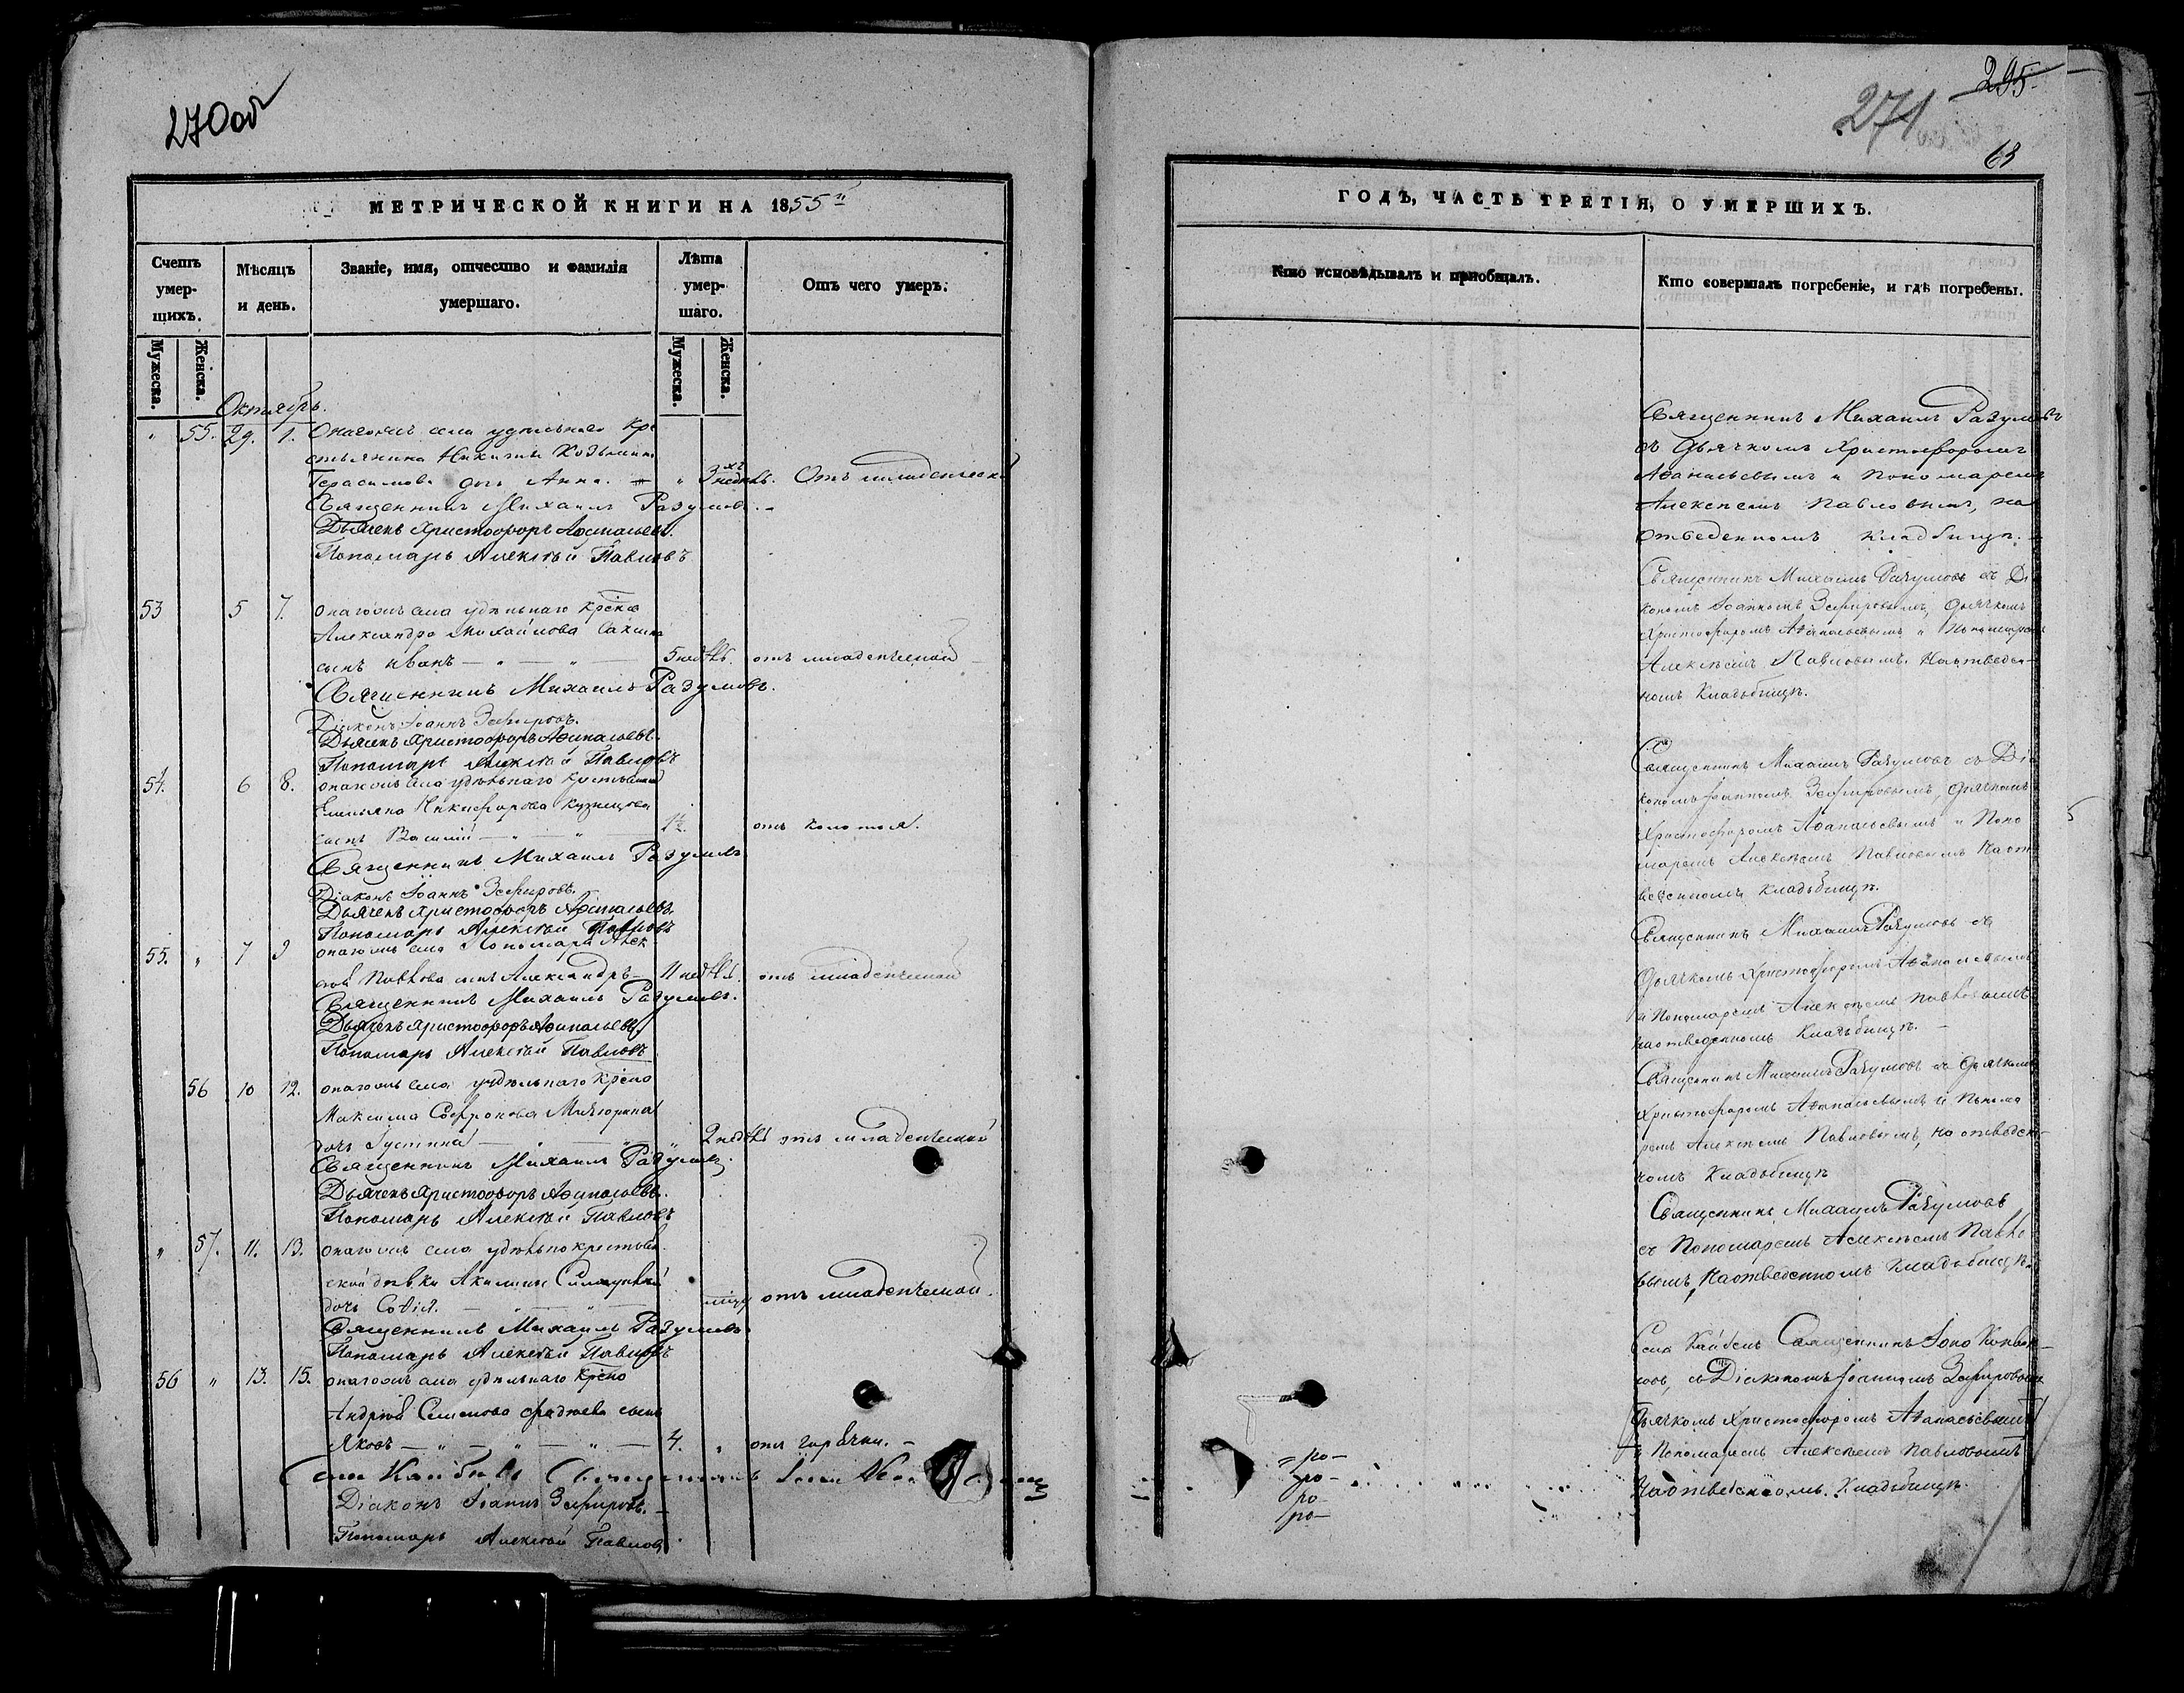 270об
МЕТРИЧЕСКОЙ КНИГИ НА 1855й
Счетъ умершихъ.
Мѣсяцъ и день.
Званіе, имя, отчество и фамилія умершаго.
Лѣта умершаго.
Отъ чего умеръ.
Мужеска. Женска.
Мужеска. Женска.
Октябрь.
" 55. 29. 1. Онагожъ села удѣльнаго Кре
стьянина Никиты Козьмина
Герасимова дочь Анна. " 3хъ недѣль. Отъ младенческой
Священникъ Михаилъ Разумовъ.
Дьячекъ Христофоръ Аѳанасьевъ.
Пономарь Алексѣй Павловъ
53 5 7. онагожъ села удѣльнаго Крсна
Александра Михайлова
сынъ Иванъ — " — " — 5 недѣль. отъ младенческой
Священникъ Михаилъ Разумовъ.
Діаконъ Іоаннъ Зефировъ.
Дьячекъ Христофоръ Аѳанасьевъ.
Пономарь Алексѣй Павловъ
54. 6 8. онагожъ села удѣльнаго крестьянина
Емельяна Никифорова Кузнецова
сынъ Василій — " — " — 1½. отъ колотья.
Священникъ Михаилъ Разумовъ
Діаконъ Іоаннъ Зефировъ.
Дьячекъ Христофоръ Аѳанасьевъ.
Пономарь Алексѣй Павловъ
55. " 7 9 онагожъ села Пономаря Алек
сѣя Павлова сынъ Александръ — 11 недѣль. отъ младенческой
Священникъ Михаилъ Разумовъ.
Дьячекъ Христофоръ Аѳанасьевъ.
Пономарь Алексѣй Павловъ
56 10 12. онагожъ села удѣльнаго Крсно
Максима Софронова Мичюрина
дочь Іустина — " — " " 2 недѣль отъ младенческой
Священникъ Михаилъ Разумовъ.
Дьячекъ Христофоръ Аѳанасьевъ.
Пономарь Алексѣй Павловъ
" 57. 11. 13. онагожъ села удѣльно крестьян
ской дѣвки Акилины
дочь Софія. — " — " — отъ младенческой.
Священникъ Михаилъ Разумовъ
Пономарь Алексѣй Павловъ
56 " 13. 15. онагожъ села удѣльнаго Крсно
Андрея Семенова сынъ
Яковъ — " — " — " — 4. " отъ горячки. —
Села Кайбелъ Священникъ Іоаннъ
Діаконъ Іоаннъ Зефировъ. —
Пономарь Алексѣй Павловъ
295
271
63
ГОДЪ, ЧАСТЬ ТРЕТІЯ, О УМЕРШИХЪ.
Кто исповѣдывалъ и пріобщалъ.
Кто совершалъ погребеніе, и гдѣ погребены.
Священникъ Михаилъ Разумовъ
съ Дьячкомъ Христофоромъ
Аѳанасьевымъ и Пономаремъ
Алексѣемъ Павловымъ, на
отведенномъ кладбищѣ. —
Священникъ Михаилъ Разумовъ съ Діа
кономъ Іоанномъ Зефировымъ, дьячкомъ
Христофоромъ Аѳанасьевымъ и Пономаремъ
Алексѣемъ Павловымъ. На отведен-
номъ Кладьбищѣ.
Священникъ Михаилъ Разумовъ съ Діа
кономъ Іоанномъ Зефировымъ, дьячкомъ
Христофоромъ Аѳанасьевымъ и Поно
маремъ Алексѣемъ Павловымъ На от
веденномъ кладьбищѣ.
Священникъ Михаилъ Разумовъ съ
дьячкомъ Христофоромъ Аѳанасьевымъ
и Пономаремъ Алексѣемъ Павловымъ
на отведенномъ Кладьбищѣ. —
Священникъ Михаилъ Разумовъ съ дьячкомъ
Христофоромъ Аѳанасьевымъ и Понома
ремъ Алексѣемъ Павловымъ, на отведен-
номъ Кладьбищѣ
Священникъ Михаилъ Разумовъ
съ Пономаремъ Алексѣемъ Павло
вымъ, На отведенномъ Кладьбищѣ.
Села Кайбелъ Священникъ
съ Діакономъ Іоанномъ Зефировымъ
дьячкомъ Христофоромъ Аѳанасьевымъ
и Пономаремъ Алексѣемъ Павловымъ
На отведенномъ. Кладьбищѣ.